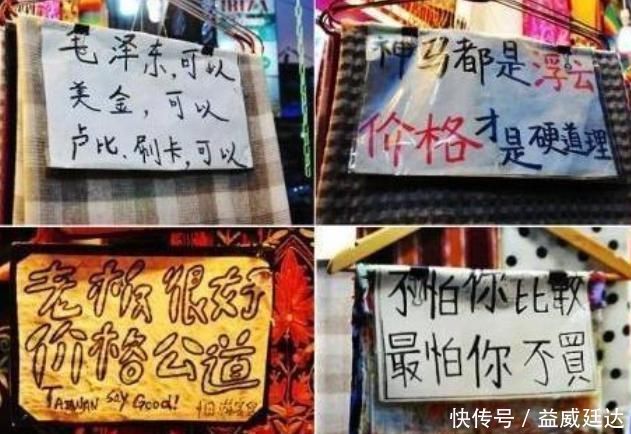 毛泽东,可以
美金,可以
卢比、刷卡,可以
神马都是浮云
价格才是硬道理
老板很好
价格公道
TAIWAN SAY Good!
不怕你比較
最怕你不買
快传号／益威廷达